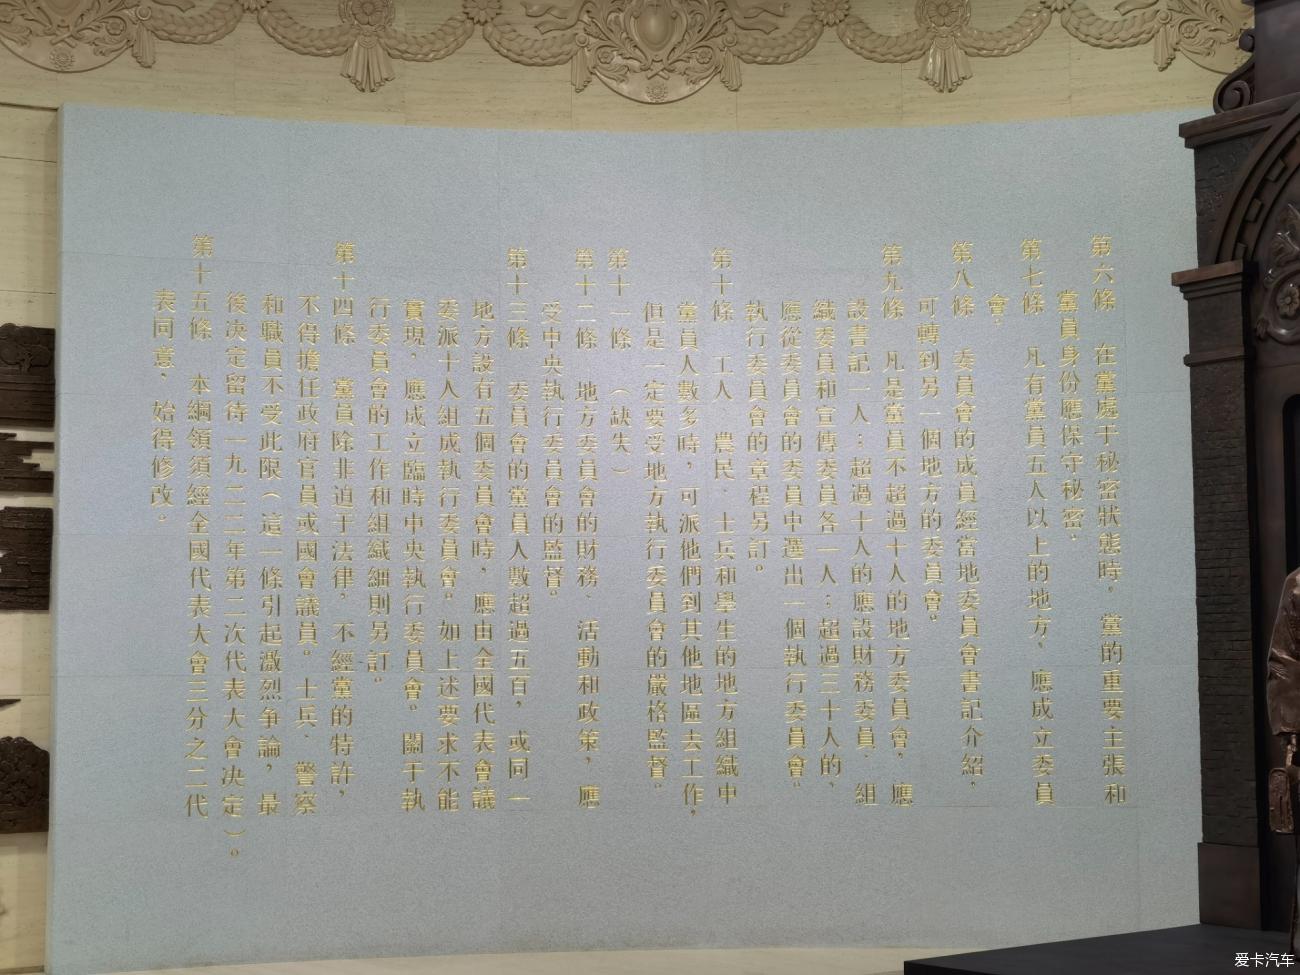 第六條　在黨處于秘密狀態時，黨的重要主張和
黨員身份應保守秘密。
第七條　凡有黨員五人以上的地方，應成立委員
會。
第八條　委員會的成員經當地委員會書記介紹，
可轉到另一個地方的委員會。
第九條　凡是黨員不超過十人的地方委員會，應
設書記一人；超過十人的應設財務委員、組
織委員和宣傳委員各一人；超過三十人的，
應從委員會的委員中選出一個執行委員會。
執行委員會的章程另訂。
第十條　工人、農民、士兵和學生的地方組織中
黨員人數多時，可派他們到其他地區去工作，
但是一定要受地方執行委員會的嚴格監督。
第十一條　（缺失）
第十二條　地方委員會的財務、活動和政策，應
受中央執行委員會的監督。
第十三條　委員會的黨員人數超過五百，或同一
地方設有五個委員會時，應由全國代表會議
委派十人組成執行委員會。如上述要求不能
實現，應成立臨時中央執行委員會。關于執
行委員會的工作和組織細則另訂。
第十四條　黨員除非迫于法律，不經黨的特許，
不得擔任政府官員或國會議員。士兵、警察
和職員不受此限（這一條引起激烈争論，最
後决定留待一九二二年第二次代表大會决定）。
第十五條　本綱領須經全國代表大會三分之二代
表同意，始得修改。
爱卡汽车